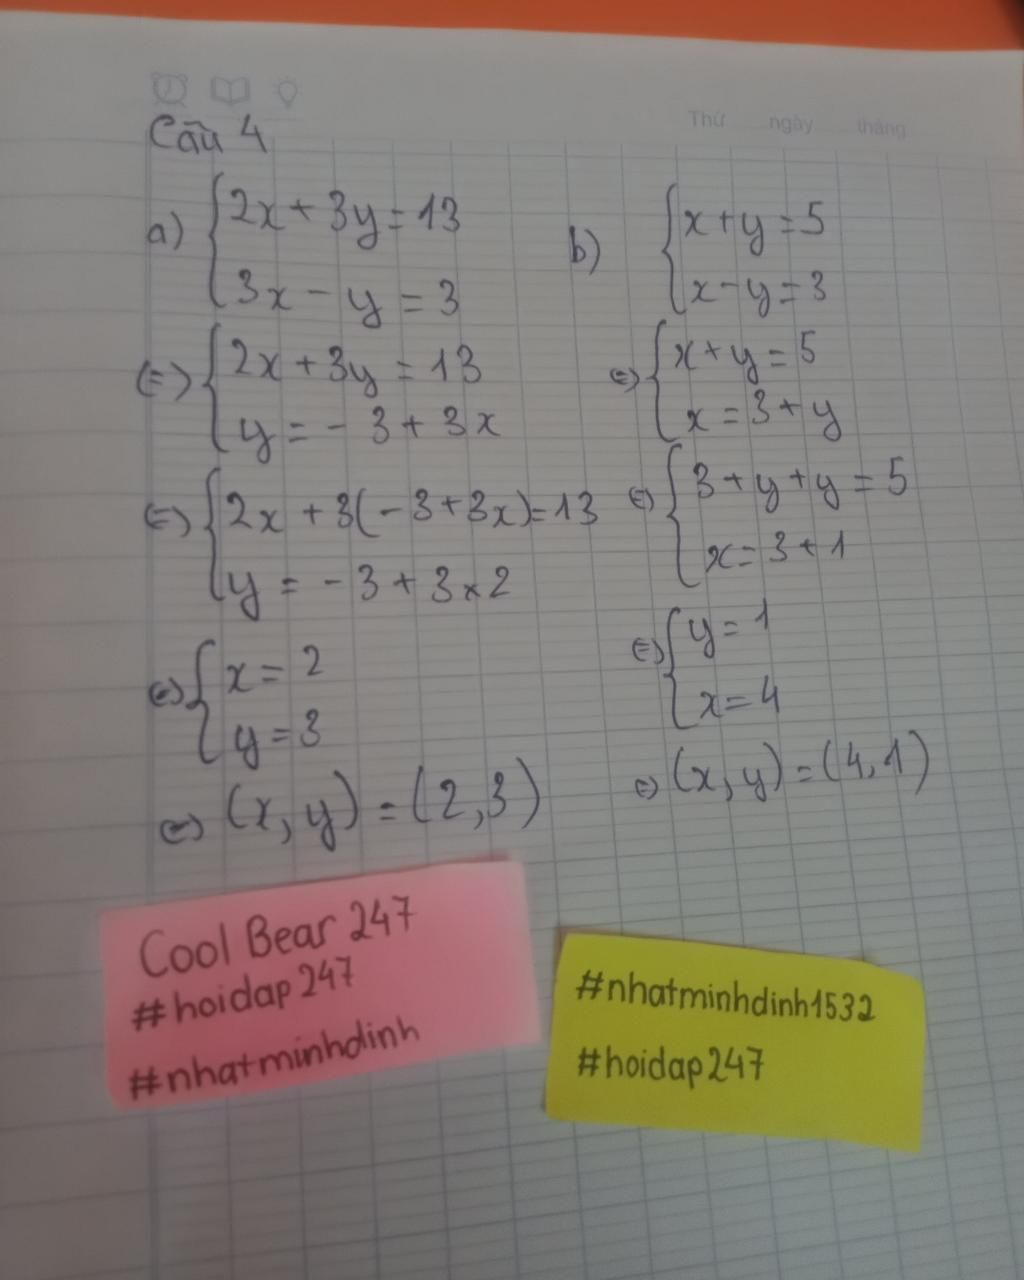 Thứ ngày tháng
Câu 4
a) { 2x + 3y = 13
3x - y = 3
(=) { 2x + 3y = 13
y = - 3 + 3x
(=) { 2x + 3(- 3 + 3x) = 13
y = - 3 + 3 x 2
(=) { x = 2
y = 3
(=) (x, y) = (2,3)
b) { x + y = 5
x - y = 3
(=) { x + y = 5
x = 3 + y
(=) { 3 + y + y = 5
x = 3 + 1
(=) { y = 1
x = 4
(=) (x, y) = (4,1)
Cool Bear 247
#hoidap247
#nhatminhdinh
#nhatminhdinh1532
#hoidap247